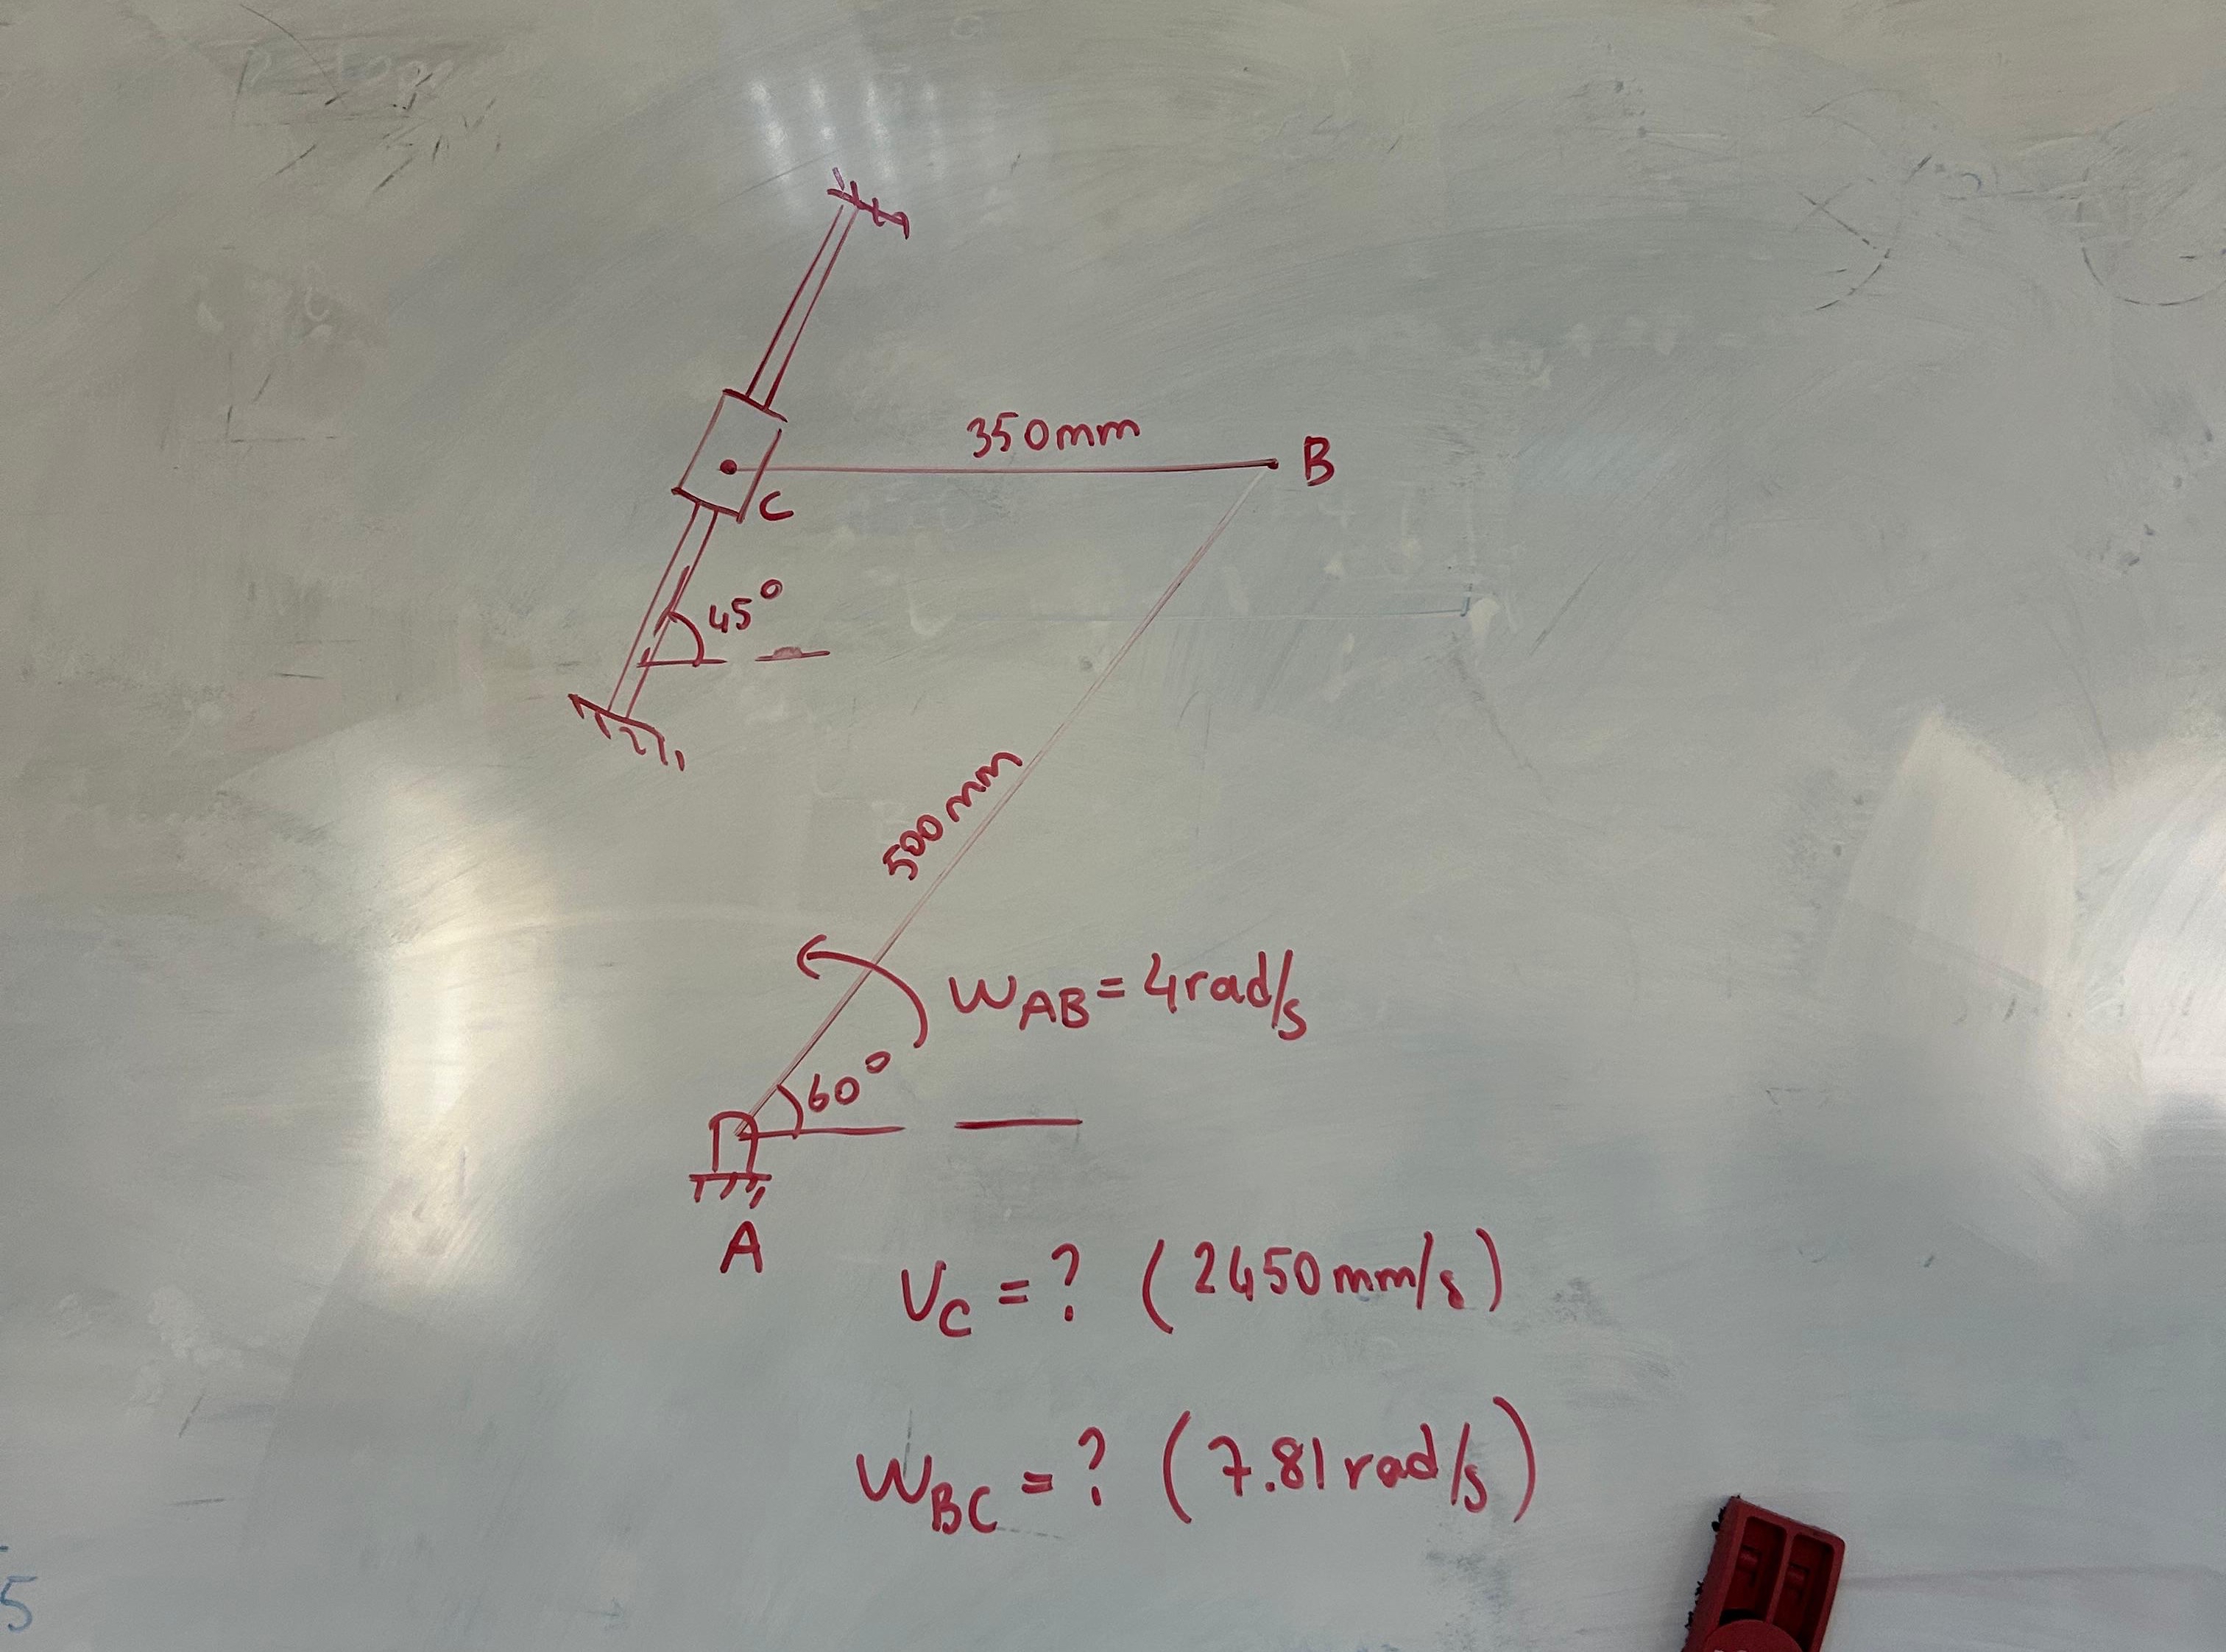 350mm
B
C
45°
500mm
WAB = 4rad/s
60°
A
VC = ? (2450mm/s)
WBC = ? (7.81rad/s)
5